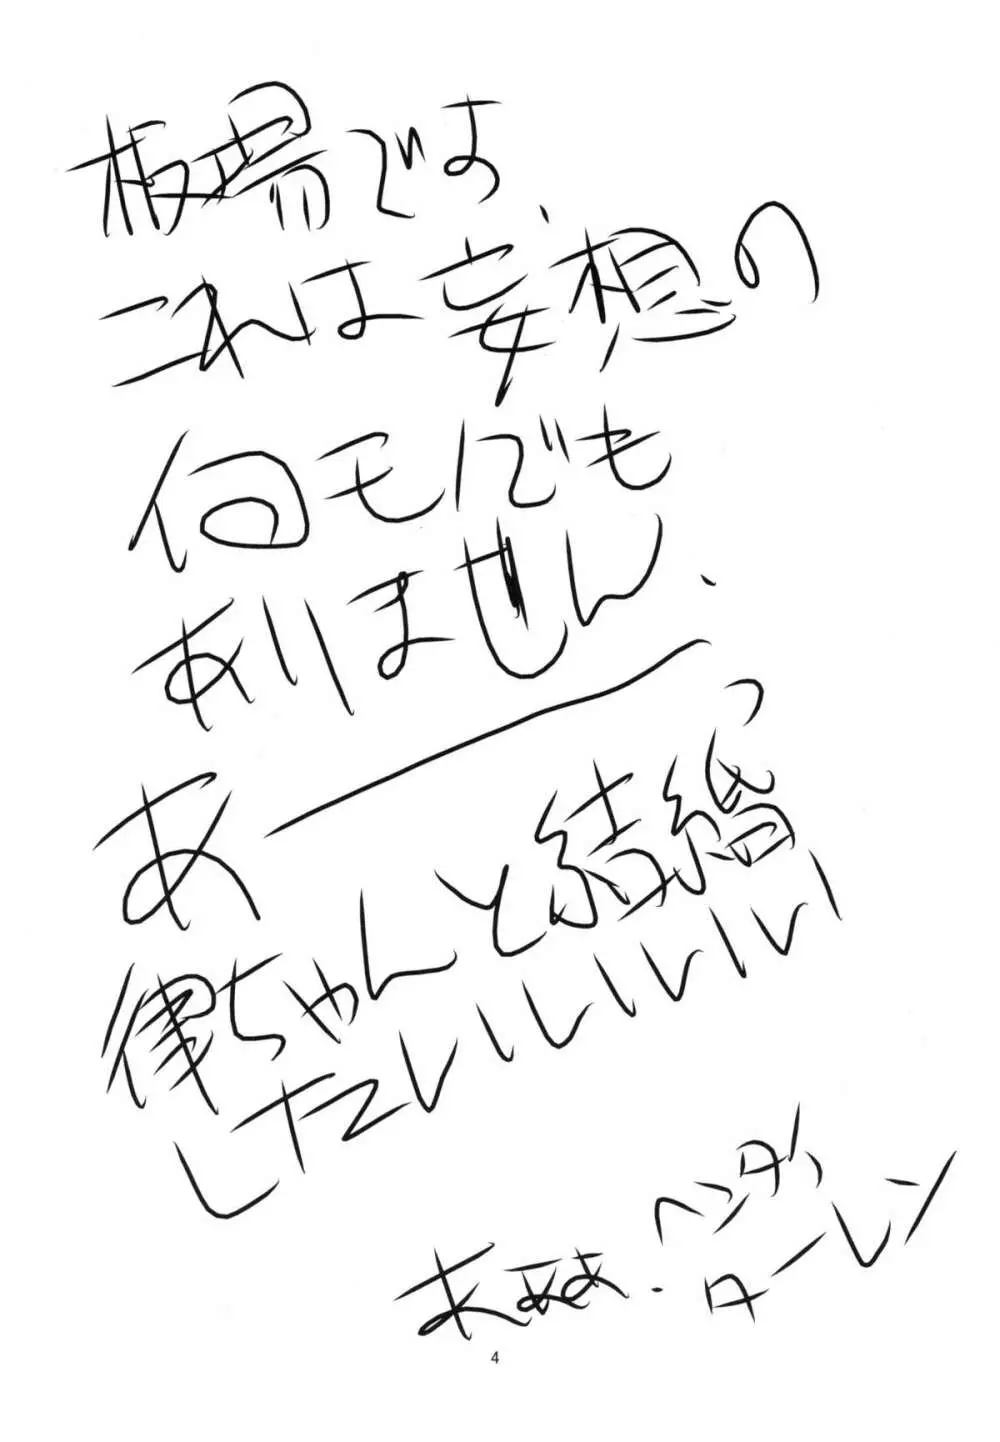 板場でよ、
これは妄想の
何モノでも
ありません、
あーっ
律ちゃんと結婚
したいいいいいい
ヘンダ
ターレン
4